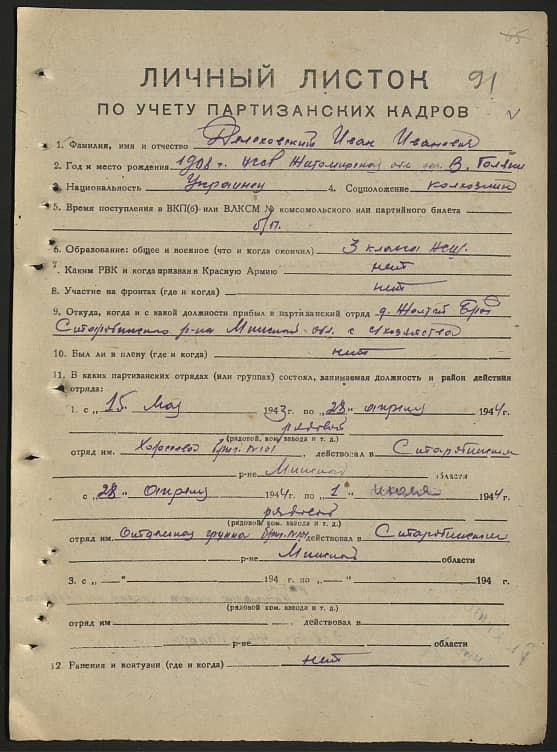 65
91
ЛИЧНЫЙ ЛИСТОК
ПО УЧЕТУ ПАРТИЗАНСКИХ КАДРОВ
1. Фамилия, имя и отчество Иван Иванович
2. Год и место рождения 1908 г. Житомирская обл.
3. Национальность Украинец 4. Соцположение колхозник
5. Время поступления в ВКП(б) или ВЛКСМ № комсомольского или партийного билета
б/п.
6. Образование: общее и военное (что и когда окончил) 3 класса
7. Каким РВК и когда призван в Красную Армию нет
8. Участие на фронтах (где и когда) нет
9. Откуда, когда и с какой должности прибыл в партизанский отряд д. Желтый Брод
Старобинского р-на Минской обл. с
10. Был ли в плену (где и когда) нет
11. В каких партизанских отрядах (или группах) состоял, занимаемая должность и район действия
отряда:
1. с „15“ мая 1943 г. по „28“ апреля 1944 г.
рядовой
(рядовой, ком. взвода и т. д.)
отряд им. бриг. №101, действовал в Старобинском
р-не Минской области
с „28“ апреля 1944 г. по „1“ июля 1944 г.
рядовой
(рядовой ком. взвода и т. д.)
отряд им. группа бриг. №101 действовал в Старобинском
р-не Минской области
3. с „ — “ 194 г. по „ — “ 194 г.
(рядовой ком. взвода и т. д.)
отряд им. действовал в
р-не области
12. Ранения и контузии (где и когда) нет